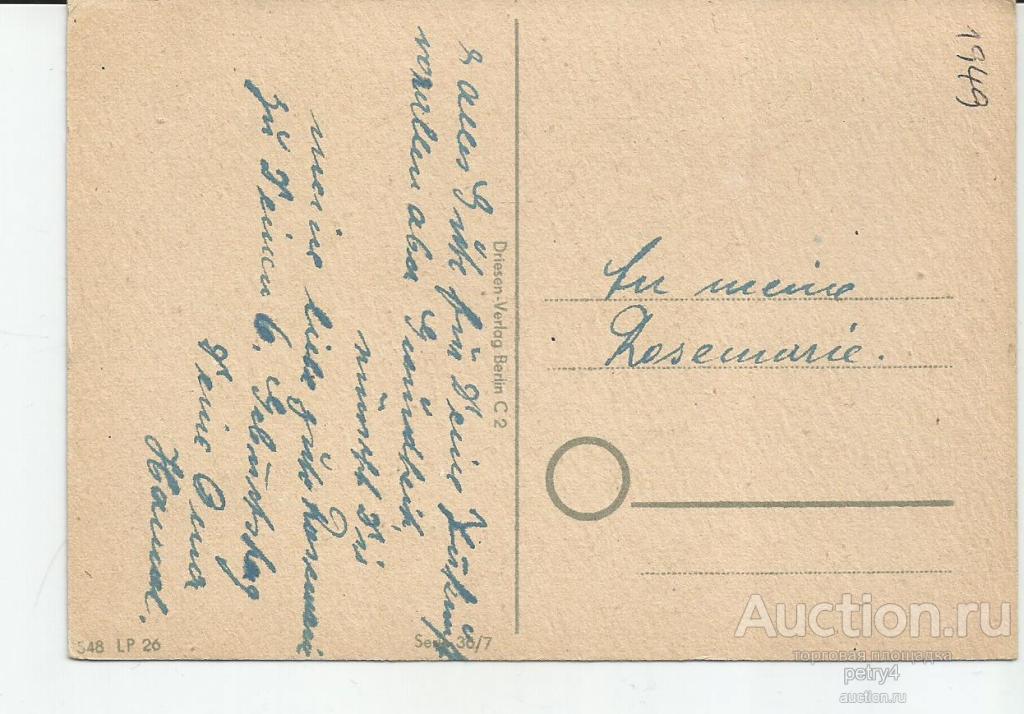 1949
alles Gute für Deine Zukunft
vor allem aber Gesundheit,
wünscht Dir
meine liebe gute Rosemarie
zu Deinem 6. Geburtstag
Deine Oma
Driesen-Verlag Berlin C 2
An meine
Rosemarie.
S48 LP 26
Serie 36/7
Auction.ru
торговая площадка
petry4
auction.ru